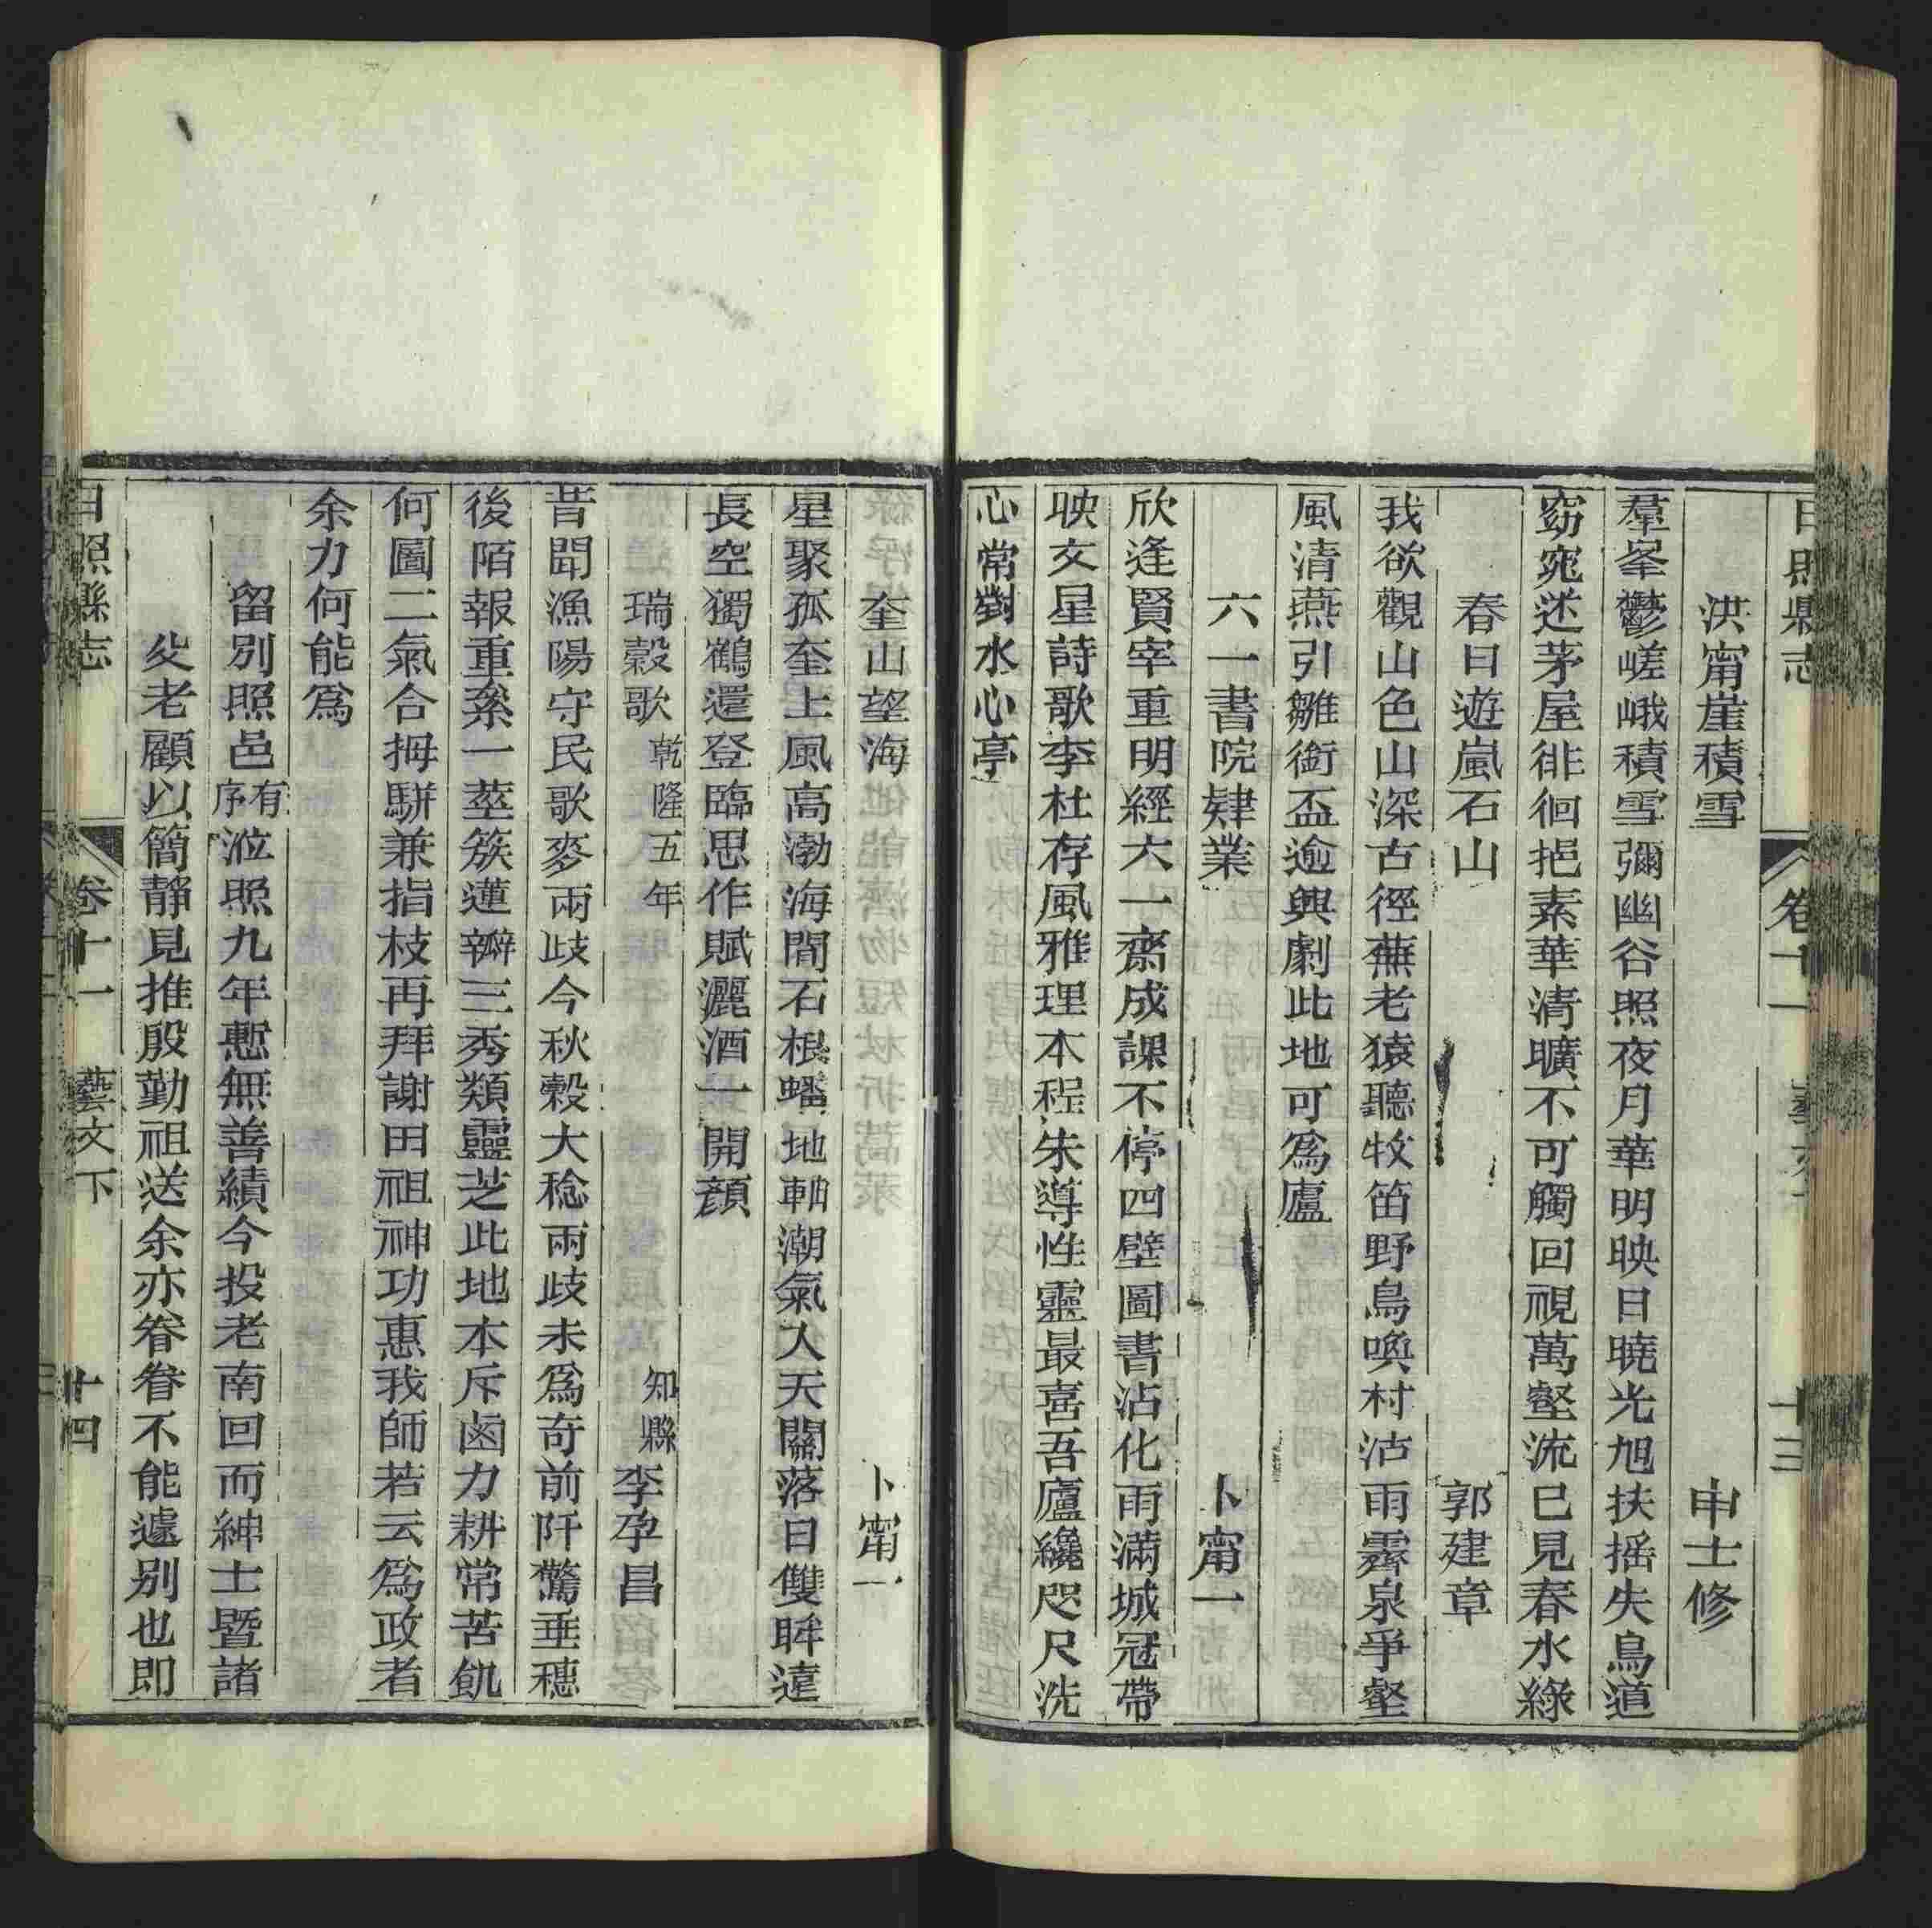 日照縣志 卷十一 藝文下 十三
洪甯崖積雪 申士修
羣峯鬱嵯峨積雪彌幽谷照夜月華明映日曉光旭扶摇失鳥道
窈窕迷茅屋徘徊挹素華清曠不可觸回視萬壑流已見春水綠
春日遊嵐石山 郭建章
我欲觀山色山深古徑蕪老猿聽牧笛野鳥喚村沽雨霽泉爭壑
風清燕引雛銜盃逾興劇此地可爲廬
六一書院肄業 卜甯一
欣逢賢宰重明經六一齋成課不停四壁圖書沾化雨滿城冠帶
映文星詩歌李杜存風雅理本程朱導性靈最喜吾廬纔咫尺洗
心常對水心亭
奎山望海 卜甯一
星聚孤奎上風高渤海間石根蟠地軸潮氣入天關落日雙眸遠
長空獨鶴還登臨思作賦灑酒一開顏
瑞穀歌 乾隆五年 知縣 李孕昌
昔聞漁陽守民歌麥兩歧今秋穀大稔兩歧未爲奇前阡驚垂穗
後陌報重纍一莖簇蓮瓣三秀類靈芝此地本斥鹵力耕常苦飢
何圖二氣合拇駢兼指枝再拜謝田祖神功惠我師若云爲政者
余力何能爲
留別照邑 有序 涖照九年慙無善績今投老南回而紳士暨諸
父老顧以簡靜見推殷勤祖送余亦眷眷不能遽别也即
日照縣志 卷十一 藝文下 十四